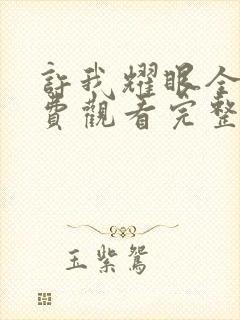 許我耀眼全
費觀看完整
玉紫鴛